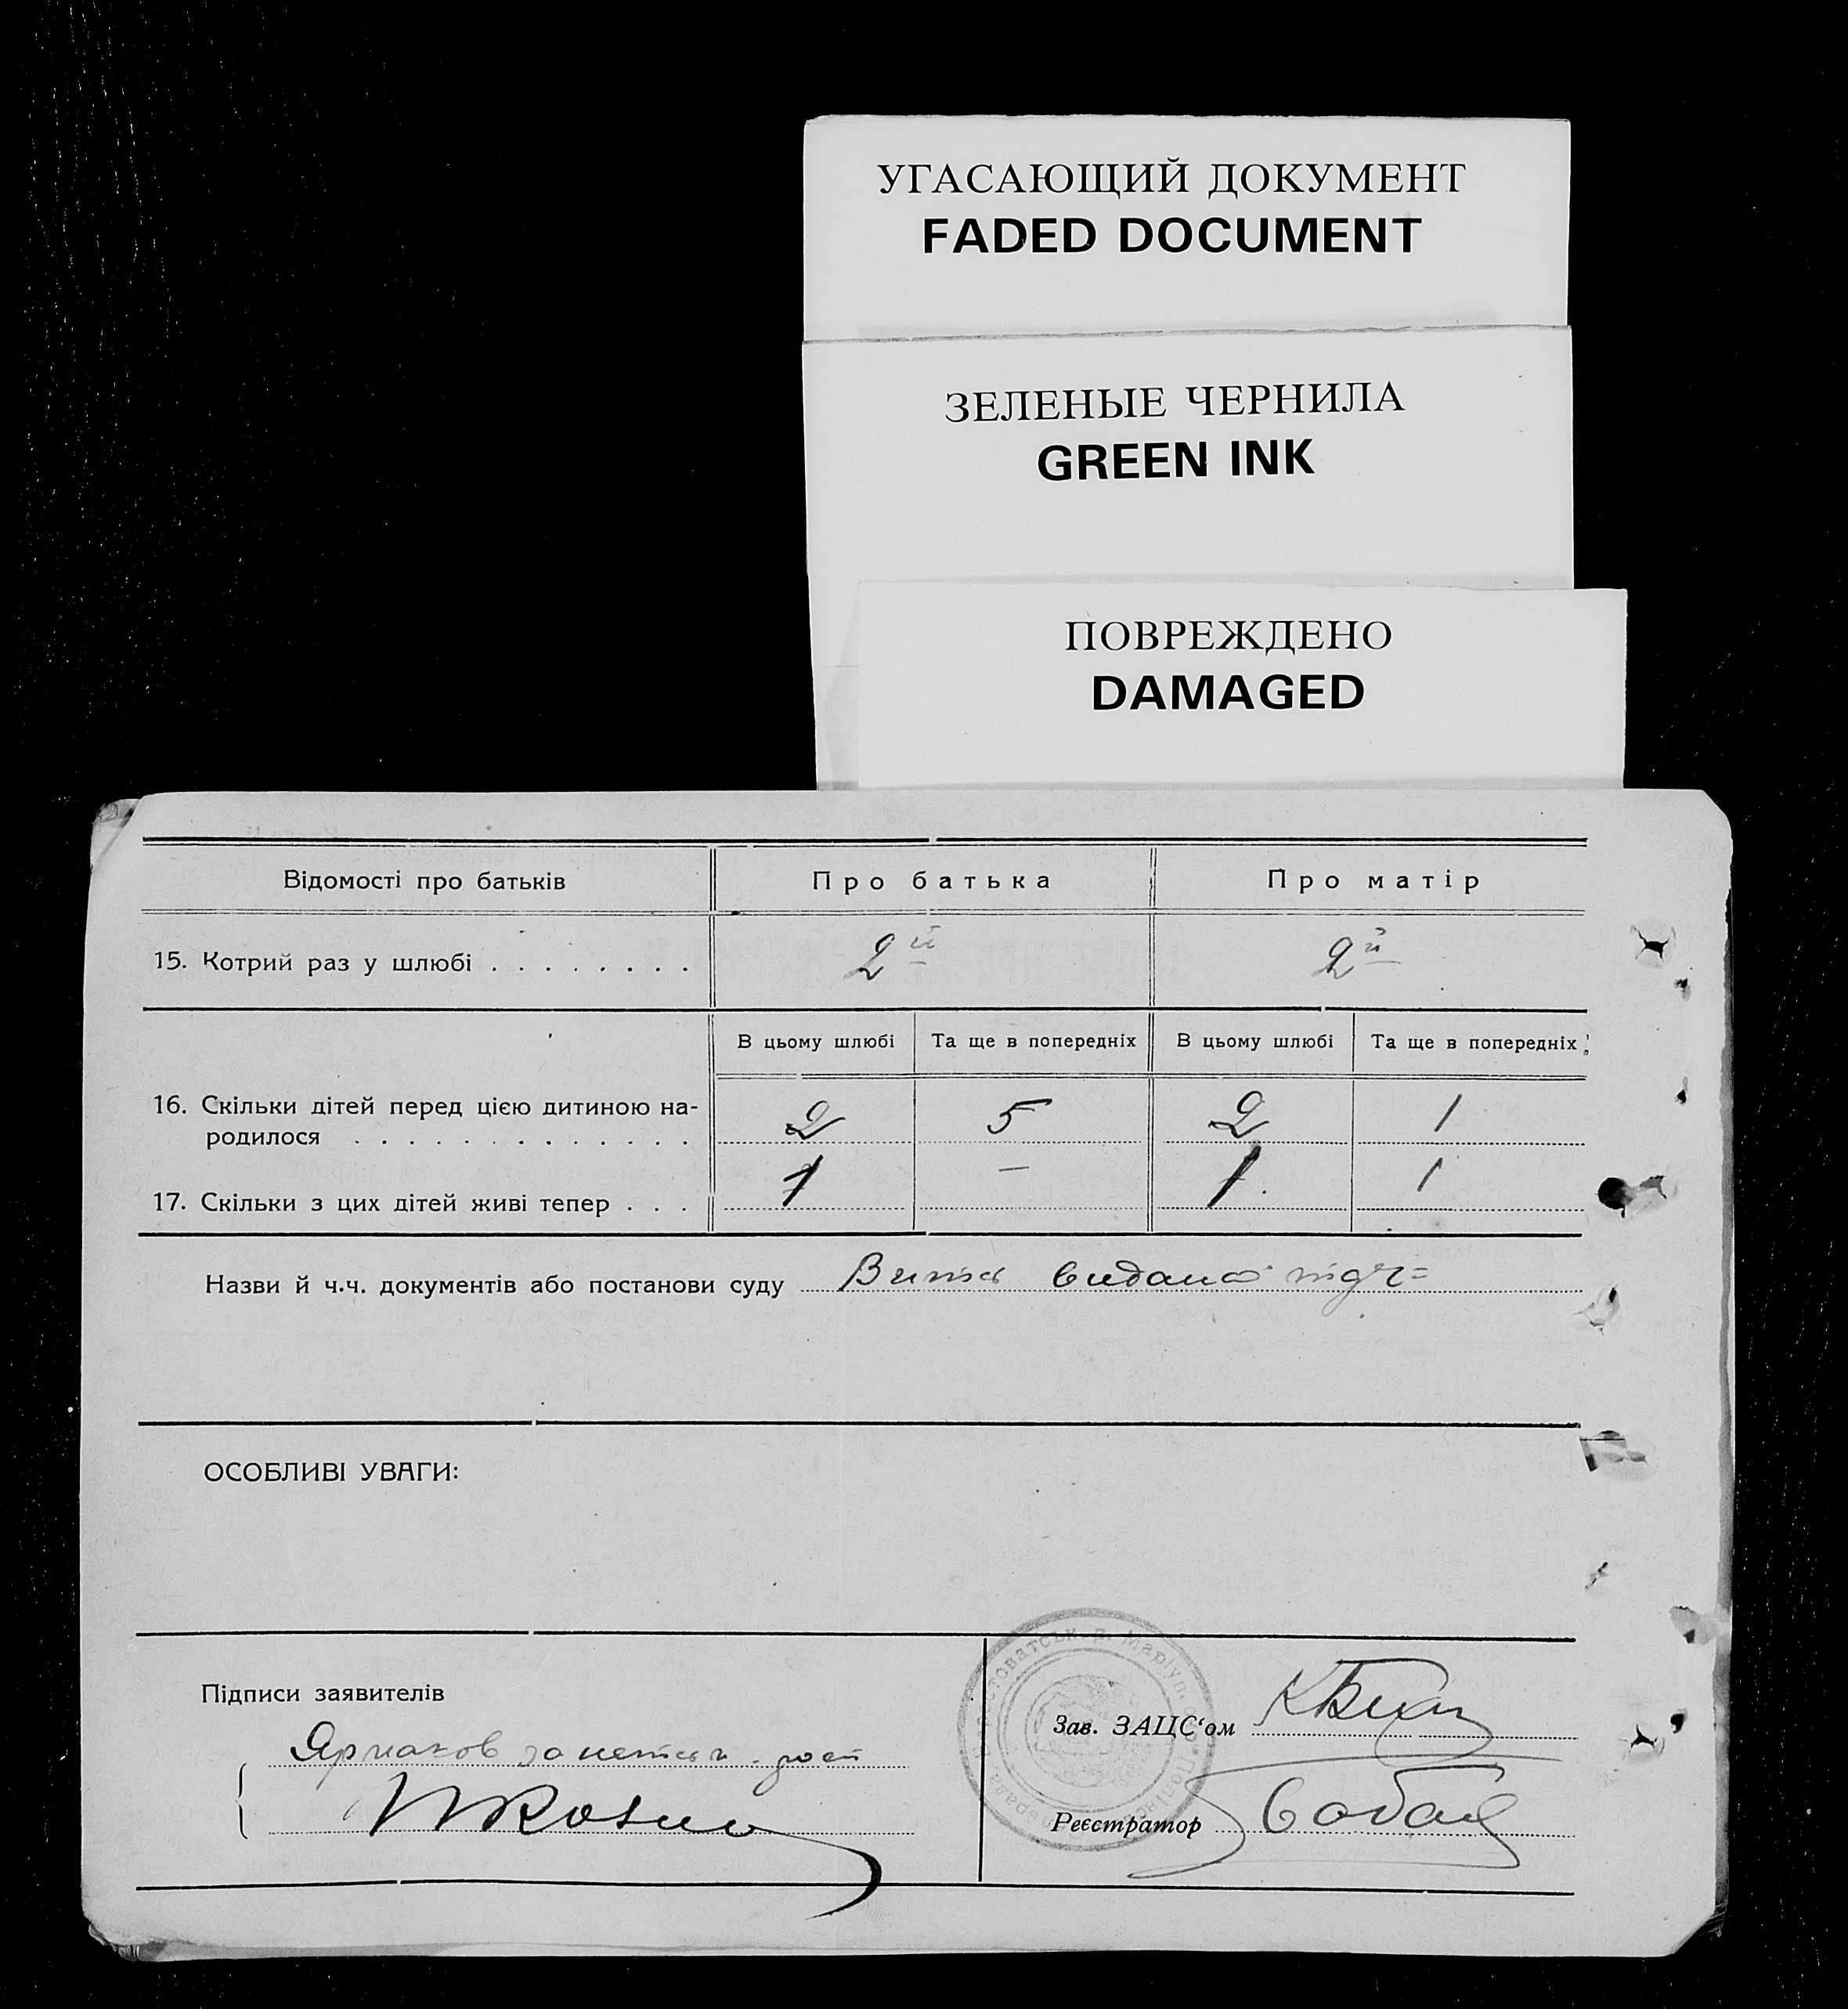 УГАСАЮЩИЙ ДОКУМЕНТ
FADED DOCUMENT
ЗЕЛЕНЫЕ ЧЕРНИЛА
GREEN INK
ПОВРЕЖДЕНО
DAMAGED
Відомості про батьків Про батька Про матір
15. Котрий раз у шлюбі . . . . . . . . 2й 2й
В цьому шлюбі Та ще в попередніх В цьому шлюбі Та ще в попередніх
16. Скільки дітей перед цією дитиною на-
родилося . . . . . . . . . . . . . 2 5 2 1
17. Скільки з цих дітей живі тепер . . . 1 — 1 1
Назви й ч.ч. документів або постанови суду видано
ОСОБЛИВІ УВАГИ:
Підписи заявителів
Зав. ЗАЦС'ом
Реєстратор